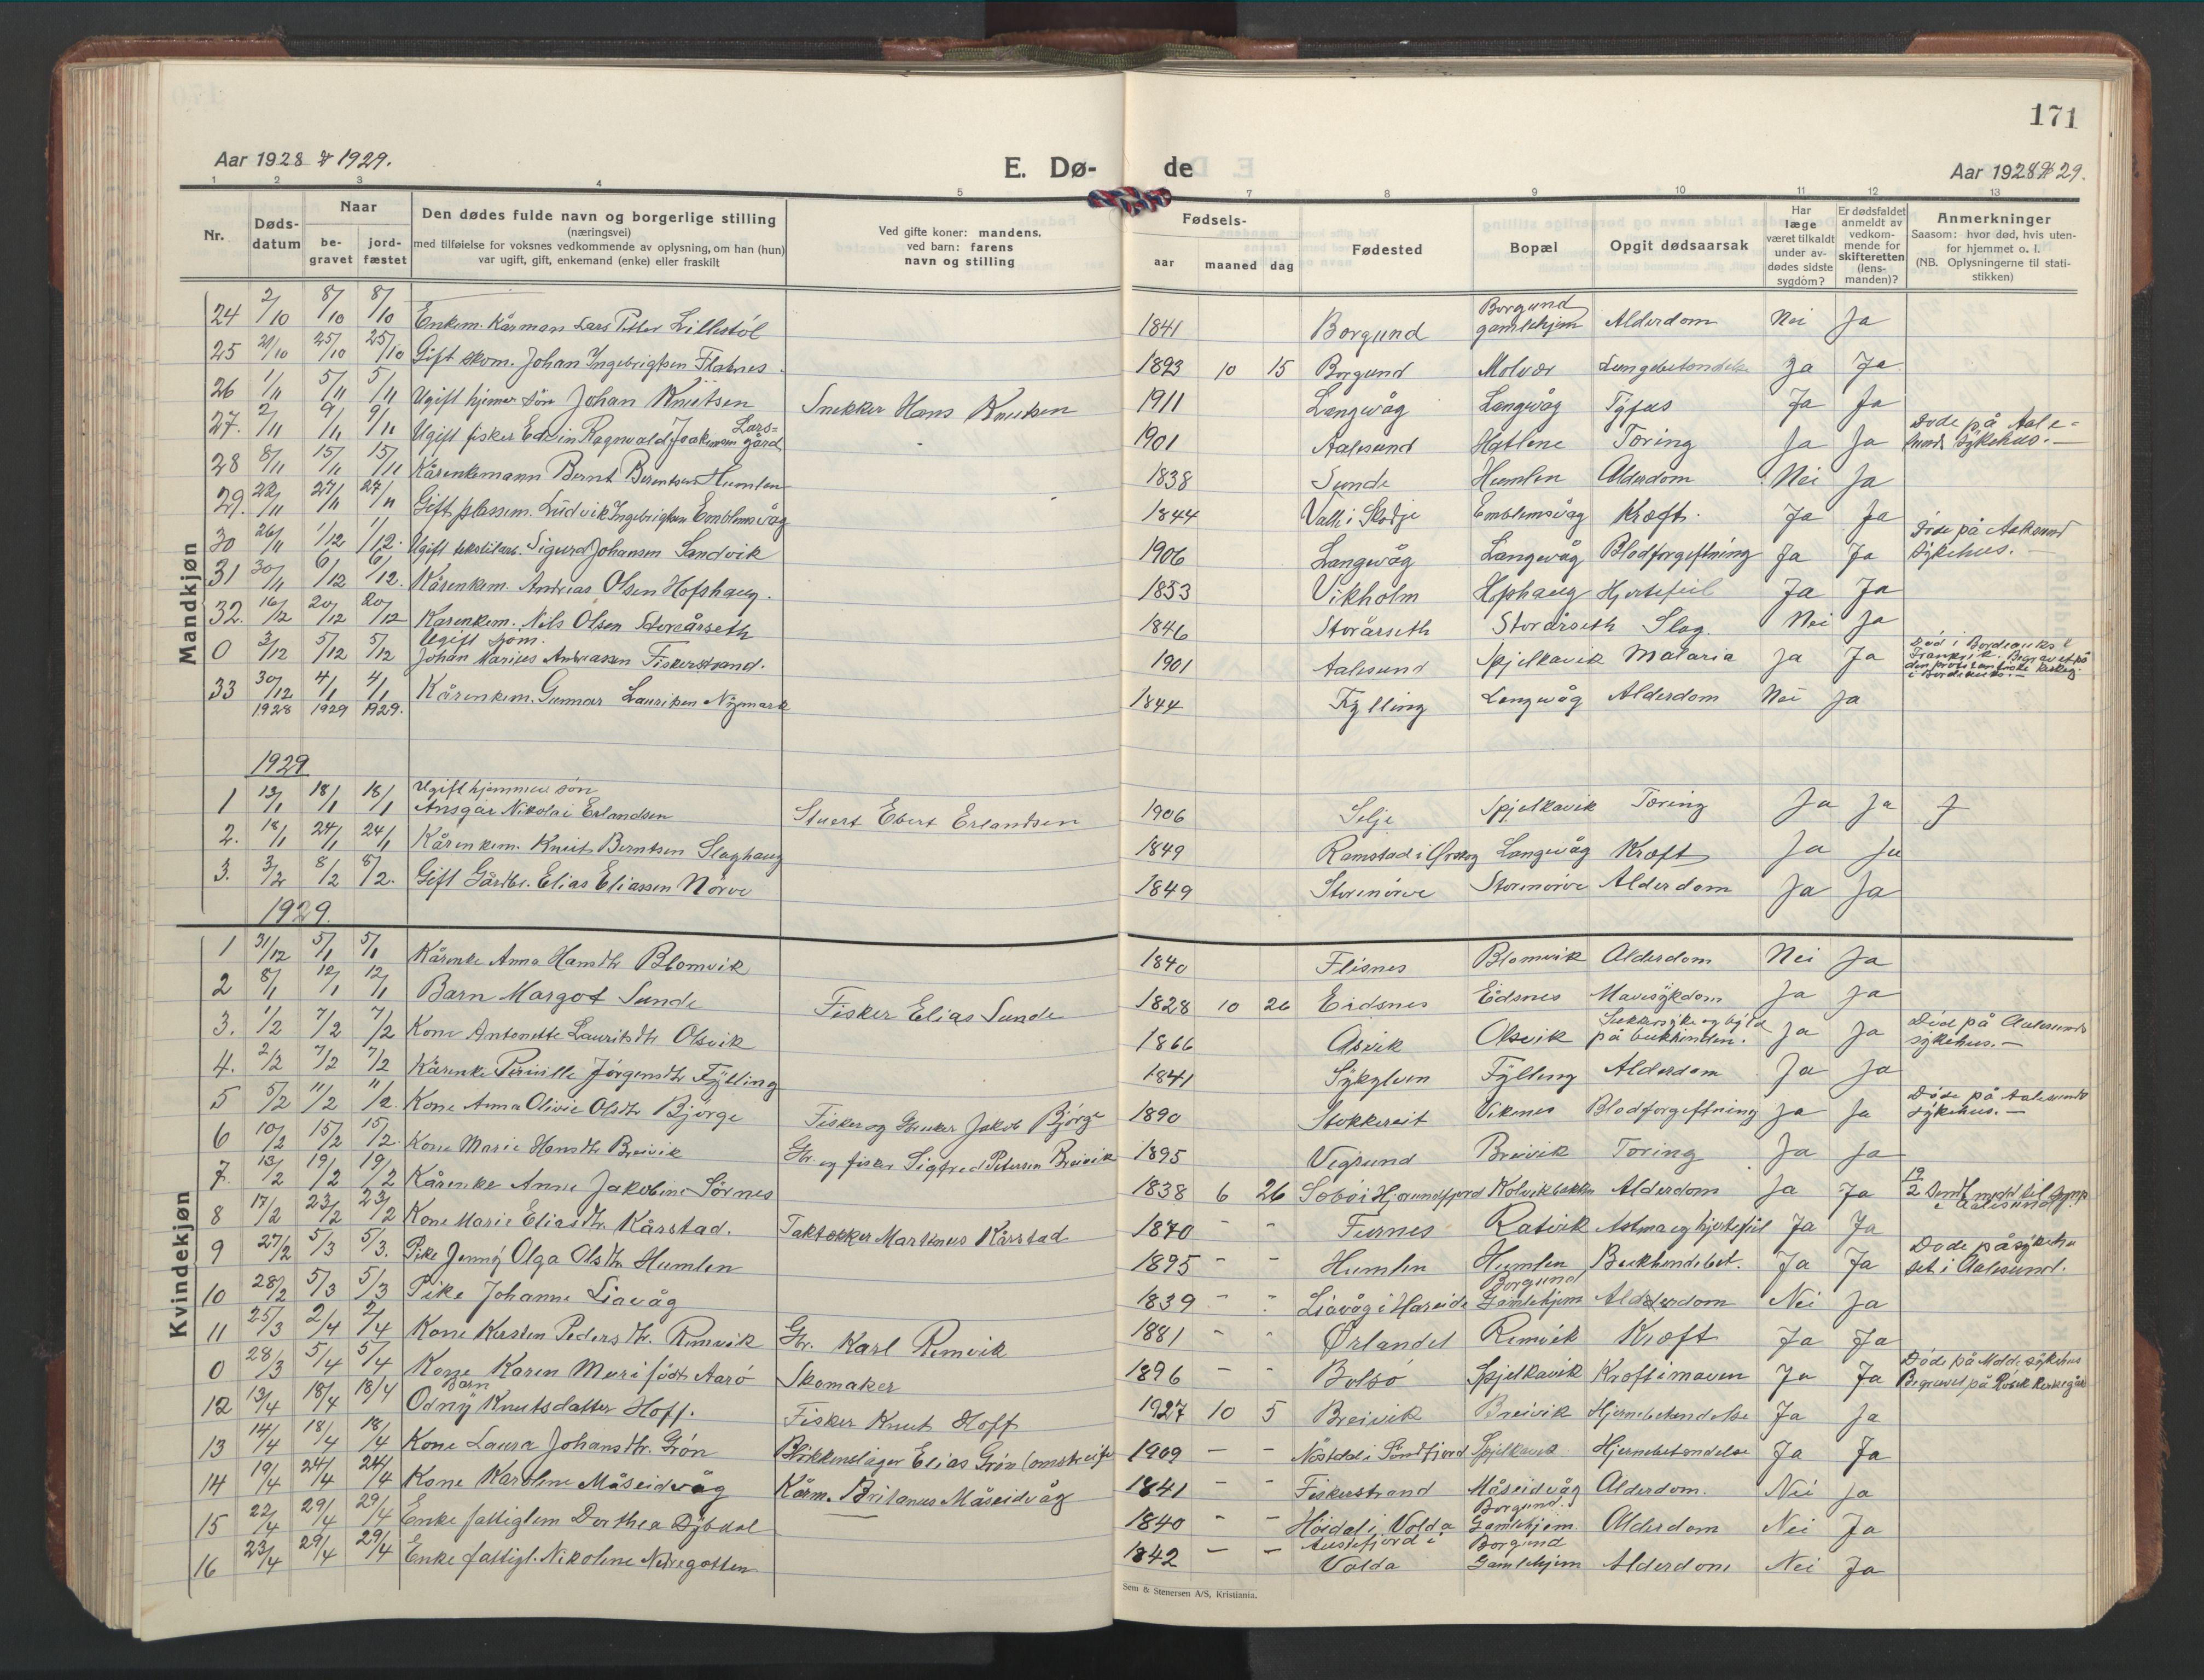 171
Aar 1928 & 1929.
E. Dø- de
Aar 1928 & 29.
1 2 3 4 5 7 8 9 10 11 12 13
Nr.
Døds-datum
Naar
be-gravet
jord-fæstet
Den dødes fulde navn og borgerlige stilling
(næringsvei)
med tilføielse for voksnes vedkommende av oplysning, om han (hun)
var ugift, gift, enkemand (enke) eller fraskilt
Ved gifte koner: mandens,
ved barn: farens
navn og stilling
Fødsels-
aar maaned dag
Fødested
Bopæl
Opgit dødsaarsak
Har læge været tilkaldt under av-dødes sidste sygdom?
Er dødsfaldet anmeldt av vedkom-mende for skifteretten (lens-manden)?
Anmerkninger
Saasom: hvor død, hvis uten-for hjemmet o. l.
(NB. Oplysningerne til stati-stikken)
Mandkjøn
24 2/10 8/10 8/10 Enkem. Kårmann Lars Petter Lillestöl 1841 Borgund Borgund gamlehjem Alderdom Nei Ja
25 21/10 25/10 25/10 Gift skom. Johan Ingebrigtsen Flatnes 1893 10 15 Borgund Molvær Lungebetendelse Ja Ja
26 1/11 5/11 5/11 Ugift hjemmev. sön Johan Knutsen Snekker Hans Knutsen 1911 Langevåg Langevåg Tyfus Ja Ja
27. 2/11 9/11 9/11 Ugift fisker Edvin Ragnvald Joakimsen Lars=gård 1901 Aalesund Hatlene Tæring Ja Ja Döde på Aale=sunds Sykehus.
28 8/11 15/11 15/11 Kårenkemann Bernt Berentsen Humlen 1838 Sunde Humlen Alderdom Nei Ja
29. 22/11 27/11 27/11 Gift plassem. Ludvik Ingebrigtsen Emblemsvåg 1844 Valle i Skodje Emblemsvåg Kræft. Ja Ja
30 26/11 1/12 1/12. Ugift tekstilarb. Sigurd Johansen Sandvik 1906 Langevåg Langevåg Blodforgiftning Ja Ja Döde på Aalesund Sykehus.
31 30/11 6/12 6/12. Kårenkem. Andreas Olsen Hofshaug. 1853 Vikholm Hofshaug Hjertefeil Ja Ja
32. 16/12 20/12 20/12 Kårenkem. Nils Olsen Storeårseth 1846 Storårseth Storårseth Slag. Nei Ja
0 3/12 5/12 5/12 Ugift sjöm. Johan Marius Andreassen Fiskerstrand. 1901 Aalesund Spjelkavik Malaria Ja Ja Död i Bordeauks i Frankrik. Begravet på den protestantiske kirkeg. i Bordeauks.
33 30/12 4/1 4/1 Kårenkem. Gunnar Lauritsen Nymark 1844 Fylling Langevåg Alderdom Nei Ja
1928 1929 1929.
1929
1 13/1 18/1 18/1 Ugift hjemmev. sön Ansgar Nikolai Erlandsen Stuert Ebert Erlandsen 1906 Selje Spjelkavik Tæring Ja Ja
2. 18/1 24/1 24/1 Kårenkem. Knut Berntsen Slaghaug 1849 Ramstad i Ørskog Langevåg Kræft Ja Ja
3. 3/2 8/2 8/2. Gift Gårdbr. Elias Eliassen Nörve 1849 Storenörve Storenörve Alderdom Ja Ja
1929.
Kvindekjøn
1 31/12 5/1 5/1 Kårenke Anna Hansdtr Blomvik 1840 Flisnes Blomvik Alderdom Nei Ja
2 8/1 12/1 12/1 Barn Margot Sunde Fisker Elias Sunde 1828 10 26 Eidsnes Eidsnes Mavesykdom Ja Ja
3. 1/2 7/2 7/2 Kone Antonette Lauritsdtr Olsvik 1866 Åsvik Olsvik Sukkersyke og byld på bukhinden. Ja Ja Död på Aalesunds sykehus.
4. 2/2 7/2 7/2 Kårenke Pernille Jörgensdtr Fylling 1841 Sykylven Fylling Alderdom Ja Ja
5 5/2 11/2 11/2. Kone Anna Olivie Olsdtr Björge Fisker og Gbruker Jakob Björge 1890 Stokkereit Viknes Blodforgiftning Ja Ja Döde på Aalesunds Sykehus.
6 10/2 15/2 15/2. Kone Marie Hansdtr Breivik Gbr. og fisker Sigfred Petersen Breivik 1895 Vegsund Breivik Tæring Ja Ja
7. 13/2 19/2 19/2 Kårenke Anne Jakobine Sörnes 1838 6 26 Sæbö i Hjørundfjord Kolvikbakken Alderdom Ja Ja
8 17/2 23/2 23/2 Kone Marie Eliasdtr. Kårstad. Taktekker Markus Kårstad 1870 - - Furnes Ratvik Astma og hjertefeil Ja Ja
9 27/2 5/3 5/3. Pike Jenny Olga Olsdtr Humlen 1895 - - Humlen Humlen Bukhindebet. Ja Ja Döde på sykehuset i Aalesund.
10 28/2 5/3 5/3 Pike Johanne Liavåg 1839 - - Liavåg i Hareide Borgund Gamlehjem Alderdom Nei Ja
11 25/3 2/4 2/4 Kone Kirsten Pedersdtr. Remvik Gbr. Karl Remvik 1881 - - Ørlandet Remvik Kræft Ja Ja
0 28/3 5/4 5/4 Kone Karen Muri födt Aarö Skomaker 1896 - - Bolsö Spjelkavik Kræft i maven Ja Ja Döde på Molde sykehus Begravet på Röbek kirkegård
12 13/4 18/4 18/4 Barn Odny Knutsdatter Hoff. Fisker Knut Hoff 1927 10 5 Breivik Breivik Hjernebetendelse Ja Ja
13 14/4 18/4 18/4 Kone Laura Johansdtr. Grön Blikkenslager Elias Grön (omstreifer 1909 - - Nöstdal i Söndfjord Spjelkavik Hjernebetendelse Ja Ja
14 19/4 24/4 24/4 Kone Karoline Måseidvåg Kårm. Britanus Måseidvåg 1841 - - Fiskerstrand Måseidvåg Alderdom. Nei Ja
15 22/4 29/4 29/4 Enke fattiglem Dorthea Dybdal 1840 - - Höidal i Volda Borgund Gamlehjem. Alderdom Nei Ja
16 23/4 29/4 29/4 Enke fattigl. Nikoline Nedregotten 1842 - - Austefjord i Volda Borgund Gamlehjem Alderdom Nei Ja
Sem & Stenersen A/S, Kristiania.